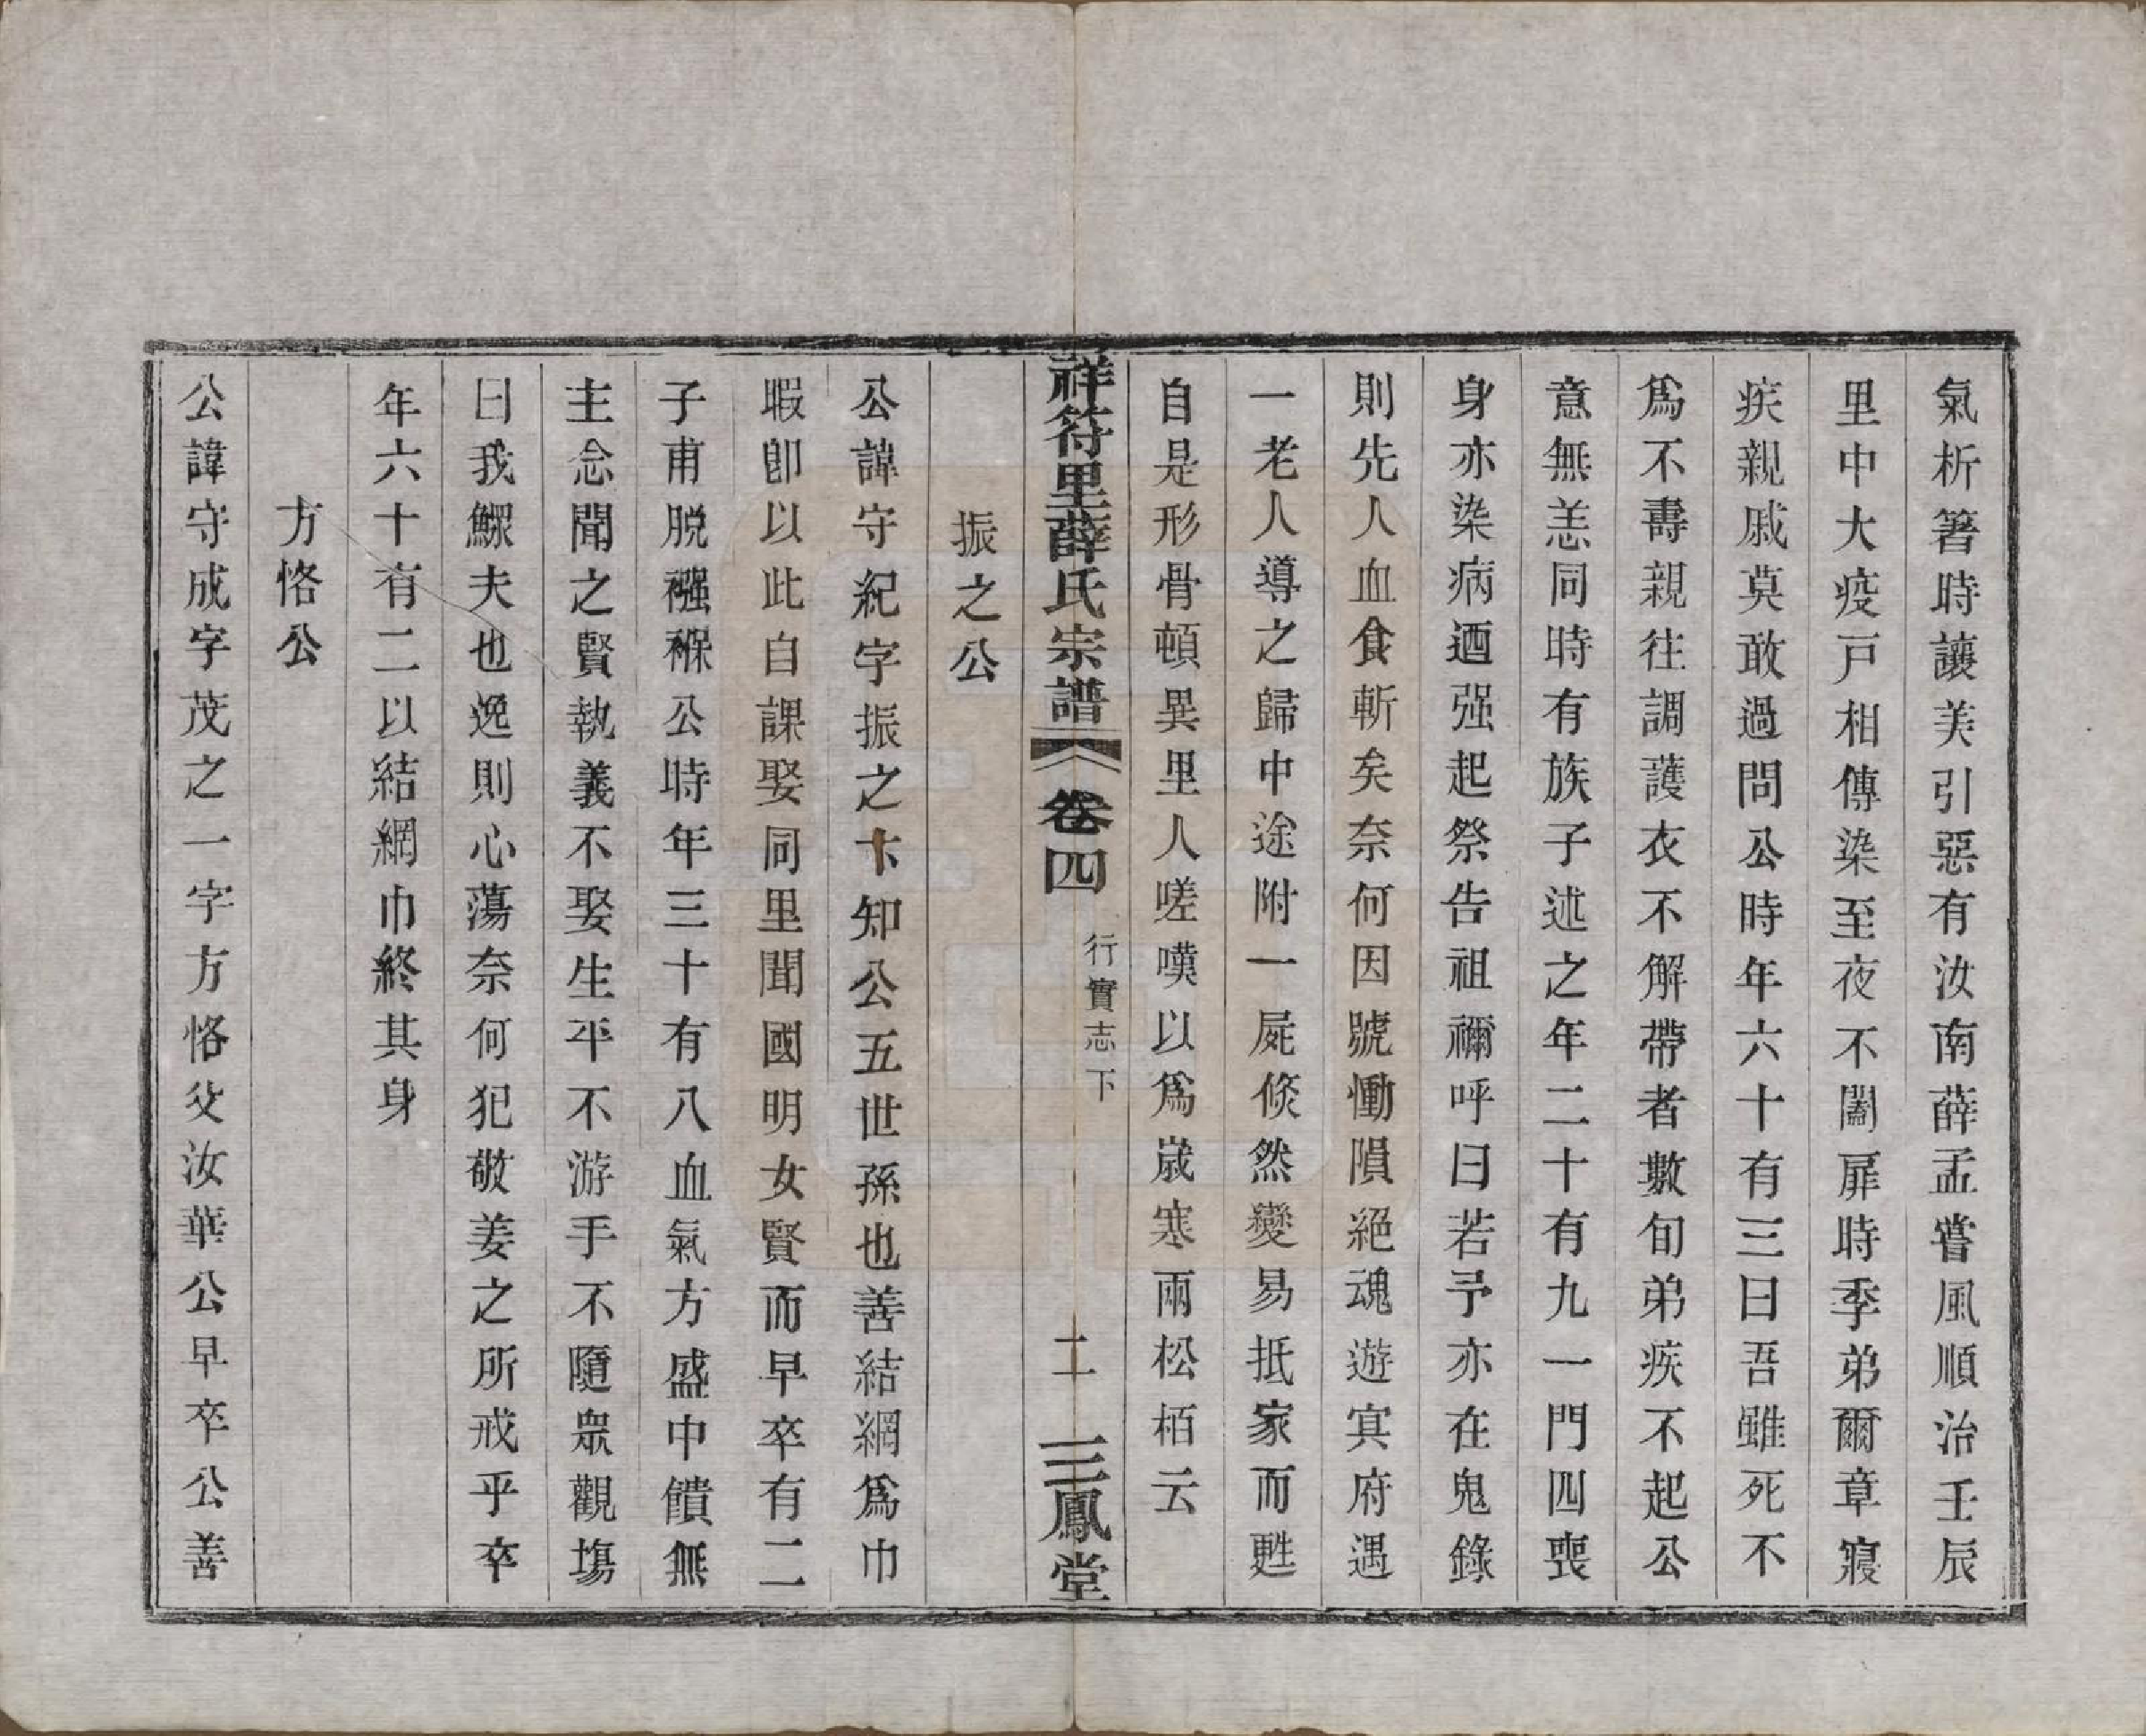 氣析箸時讓美引惡有汝南薛孟嘗風順治壬辰
里中大疫戸相傳染至夜不闔扉時季弟爾章寢
疾親戚莫敢過問公時年六十有三曰吾雖死不
爲不壽親往調護衣不解帶者數旬弟疾不起公
意無恙同時有族子述之年二十有九一門四喪
身亦染病迺强起祭告祖禰呼曰若予亦在鬼錄
則先人血食斬矣奈何因號慟隕絕魂遊冥府遇
一老人導之歸中途附一屍倐然變易抵家而甦
自是形骨頓異里人嗟嘆以爲歲寒兩松栢云
祥符里薛氏宗譜 卷四 行實志下 二 三鳳堂
振之公
公諱守紀字振之卞知公五世孫也善結網爲巾
暇卽以此自課娶同里聞國明女賢而早卒有二
子甫脱襁褓公時年三十有八血氣方盛中饋無
主念聞之賢執義不娶生平不游手不隨眾觀塲
曰我鰥夫也逸則心蕩奈何犯敬姜之所戒乎卒
年六十有二以結網巾終其身
方恪公
公諱守成字茂之一字方恪父汝華公早卒公善